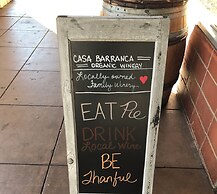 CASA BARRANCA
ORGANIC WINERY
Locally owned
Family Winery...
EAT Pie
DRINK
Local Wine
BE
Thankful